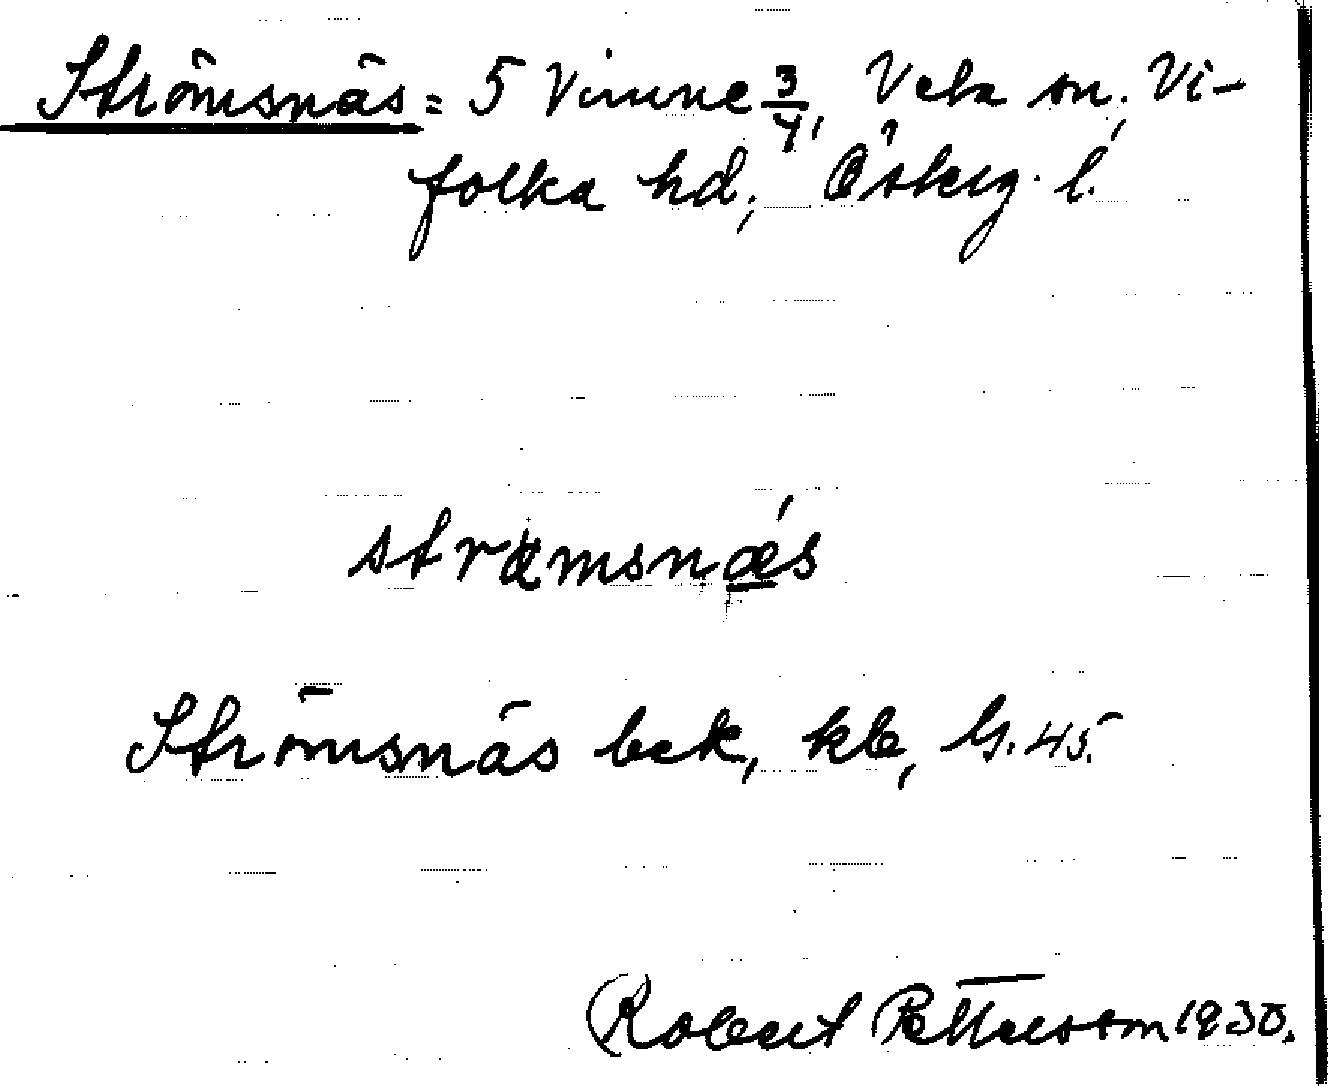 Strömsnäs = 5 Vinnne 3/4, Veta sn. Vi-
folka hd, Österg. l.
stramsnǽs
Strömsnäs bck, kb, G. 45.
Robert Pettersson 1930.